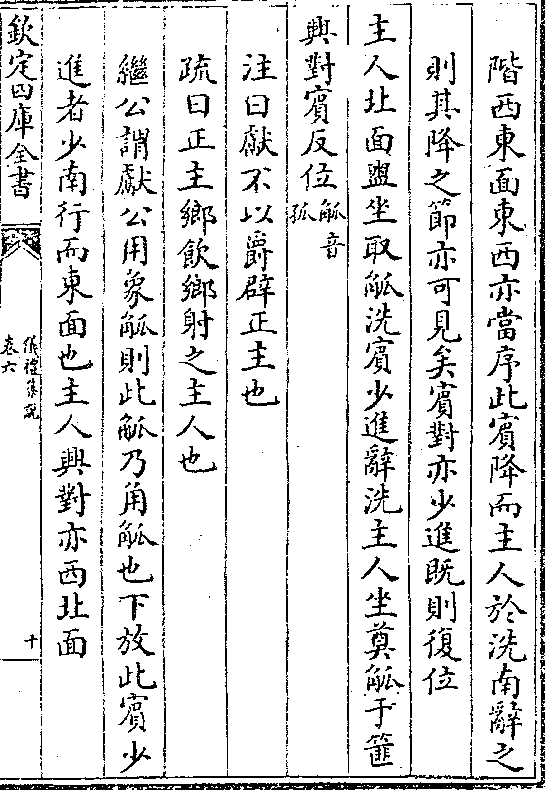 階西東面東西亦當序此賓降而主人於洗南辭之
則其降之節亦可見矣賓對亦少進既則復位
主人北面盥坐取觚洗賓少進辭洗主人坐奠觚于篚
興對賓反位觚音孤
注曰獻不以爵辟正主也
疏曰正主鄉飲鄉射之主人也
繼公謂獻公用象觚則此觚乃角觚也下放此賓少
進者少南行而東面也主人興對亦西北面
欽定四庫全書
儀禮集說
卷六
十